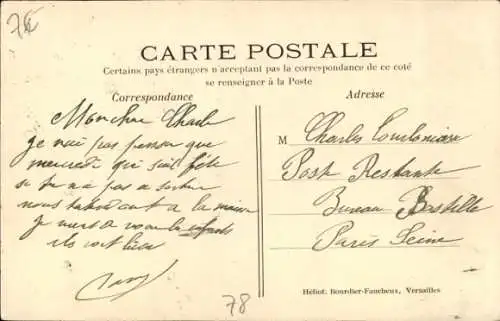 78
CARTE POSTALE
Certains pays étrangers n'acceptant pas la correspondance de ce coté
se renseigner à la Poste
Correspondance
Mon cher Charle
je nai pas penser que
mercredi qui sait fête
si tu na pas a sortir
nous a la maison
Je a
ils vont bien
Adresse
M Charles
Post Restante
Bureau Bastille
Paris Seine
Héliot. Bourdier-Faucheux, Versailles
78